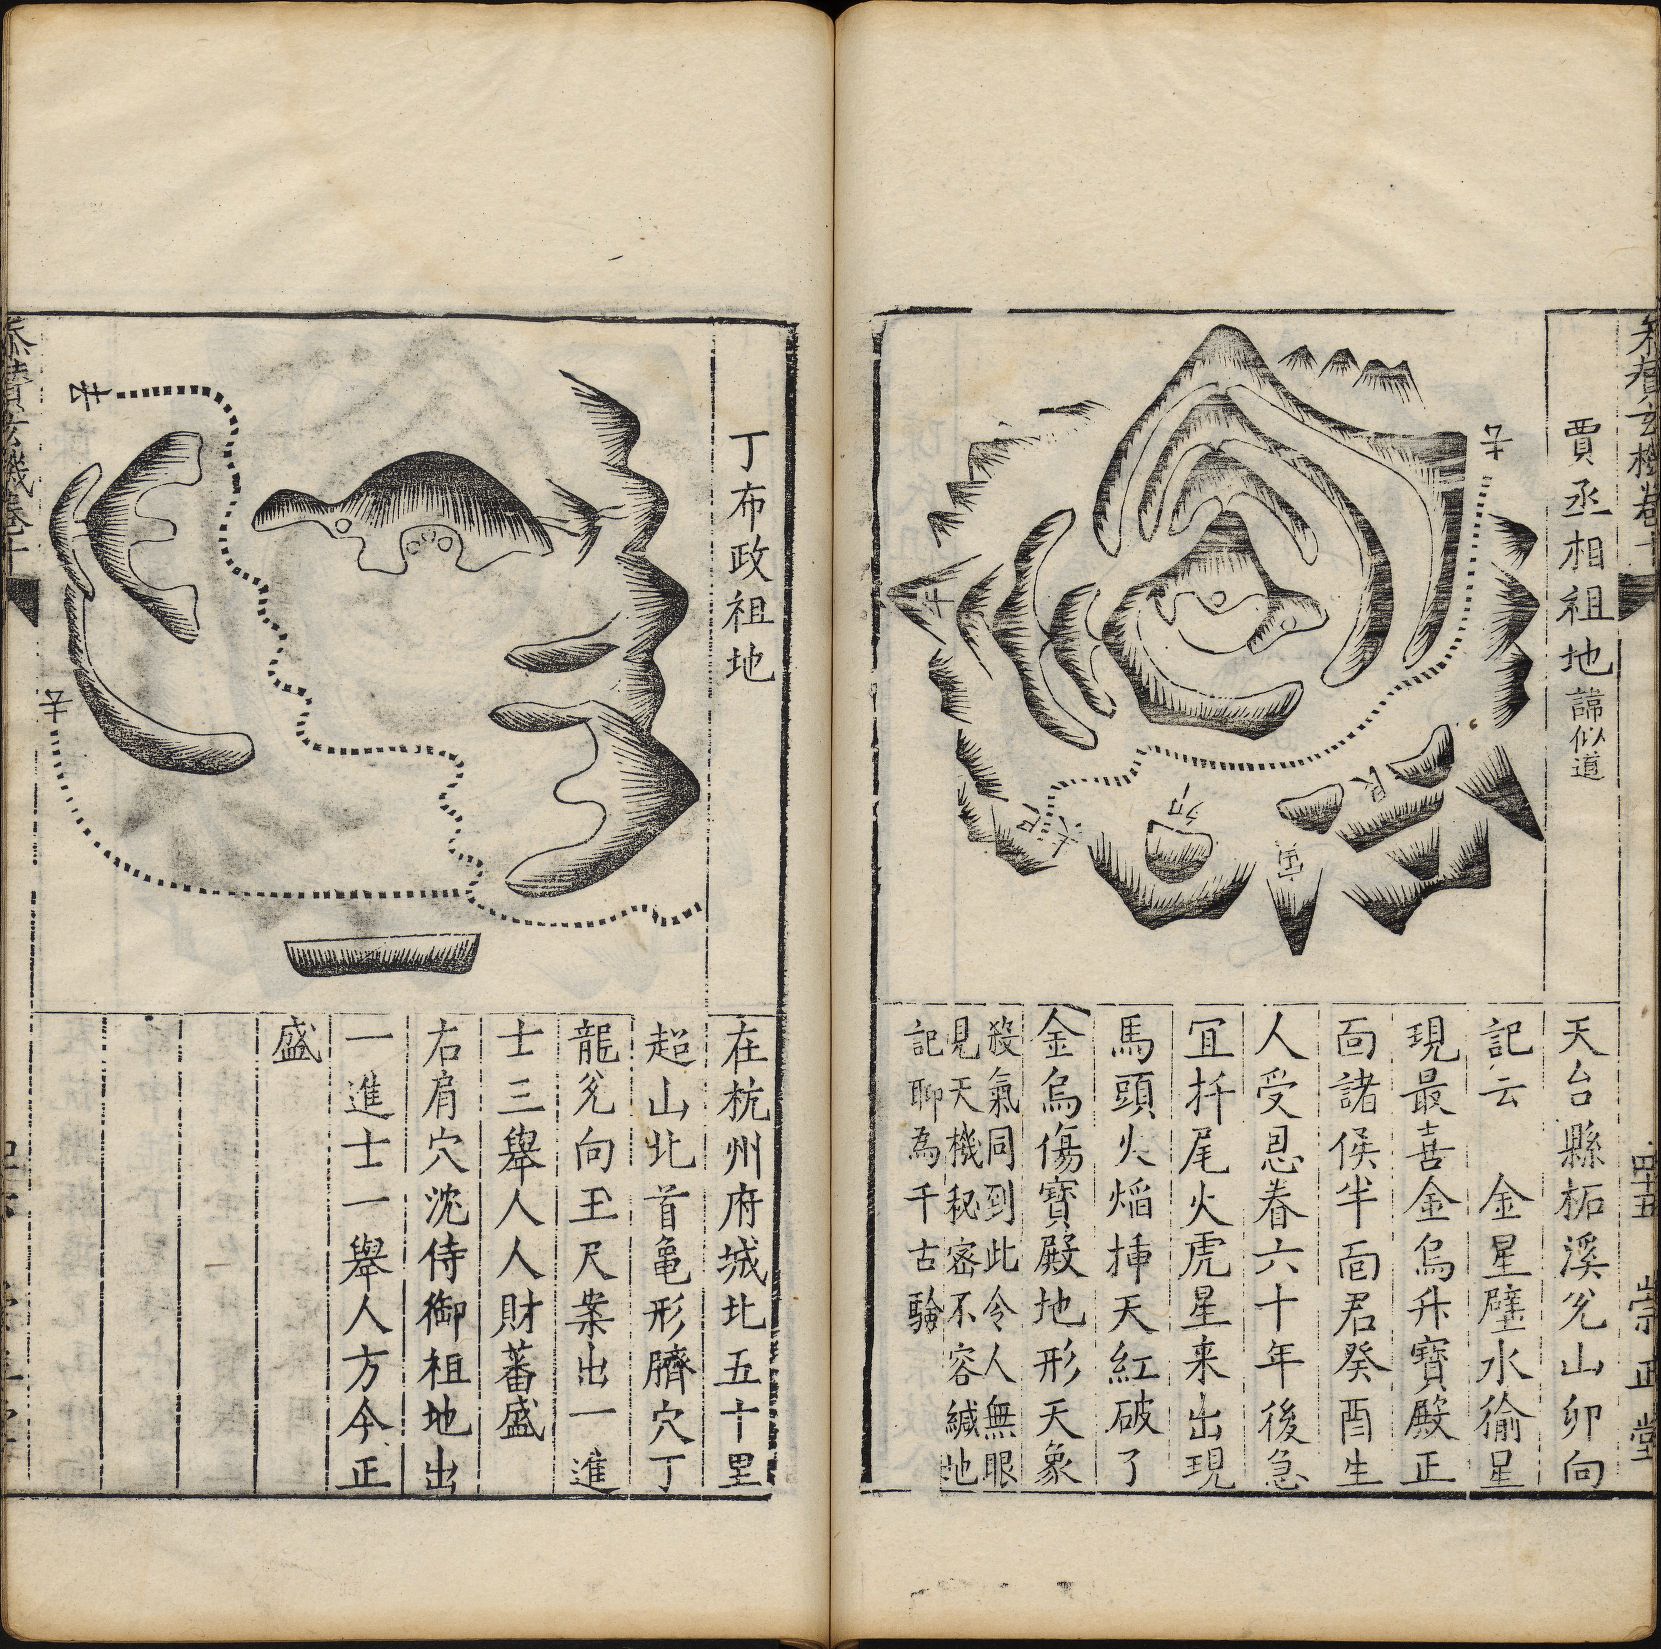 賈丞相祖地諱似道
子
艮
寅
卯
巳
去
天台縣柘溪兊山卯向
記云　金星壁水㺄星
現最喜金烏升寳殿正
面諸侯半面君癸酉生
人受恩眷六十年後急
宜扦尾火虎星来出現
馬頭火焰挿天紅破了
金烏傷寳殿地形天象
殺氣同到此令人無眼
見天機秘密不容緘地
記聊為千古驗
崇正堂
丁布政祖地
去
辛
在杭州府城北五十里
超山北首龜形臍穴丁
龍兊向玉尺案出一進
士三舉人人財蕃盛
右肩穴沈侍御祖地出
一進士一舉人方今正
盛